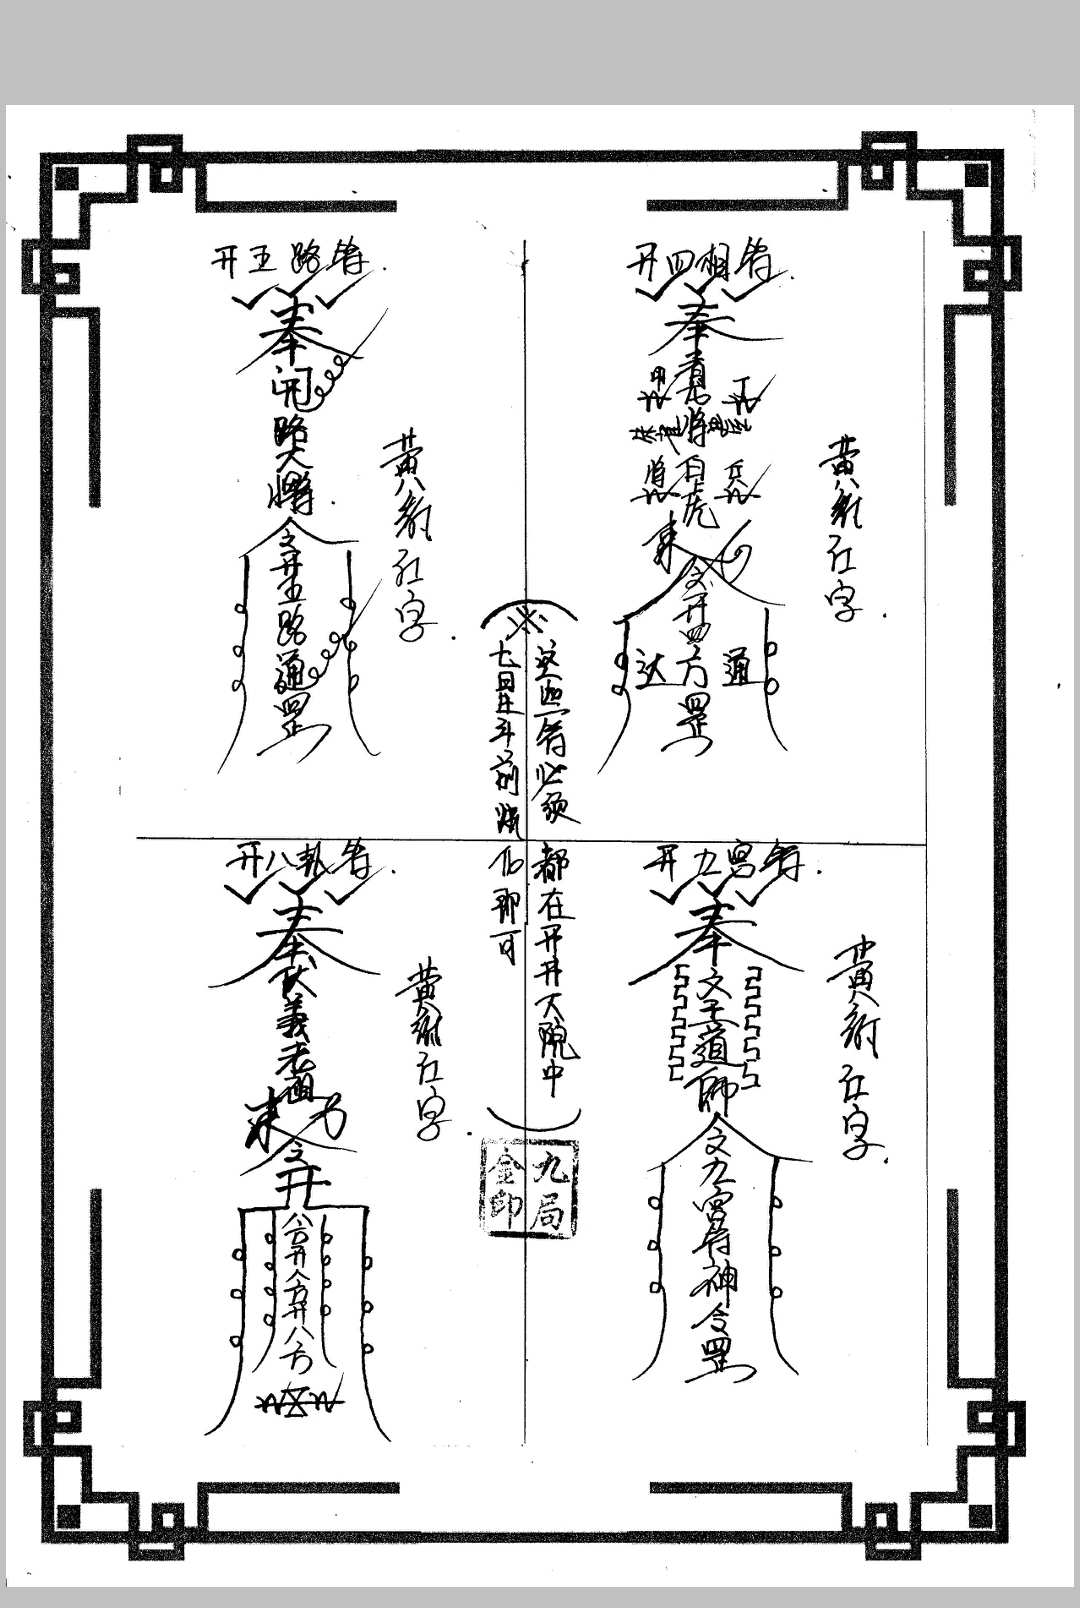 开四相符
奉
青龙将白虎
甲
丁
朱雀
将
兵
敕开四方罡
达
通
黄纸红字
开五路符
奉
开路大将
敕开五路通罡
黄纸红字
这些符必须都在开井大院中
七日
前烧化即可
开九宫符
奉
文王道师
敕九宫符神令罡
黄纸红字
开八卦符
奉
伏羲老祖
敕开
八方开八方开八方
黄纸红字
九局
金印